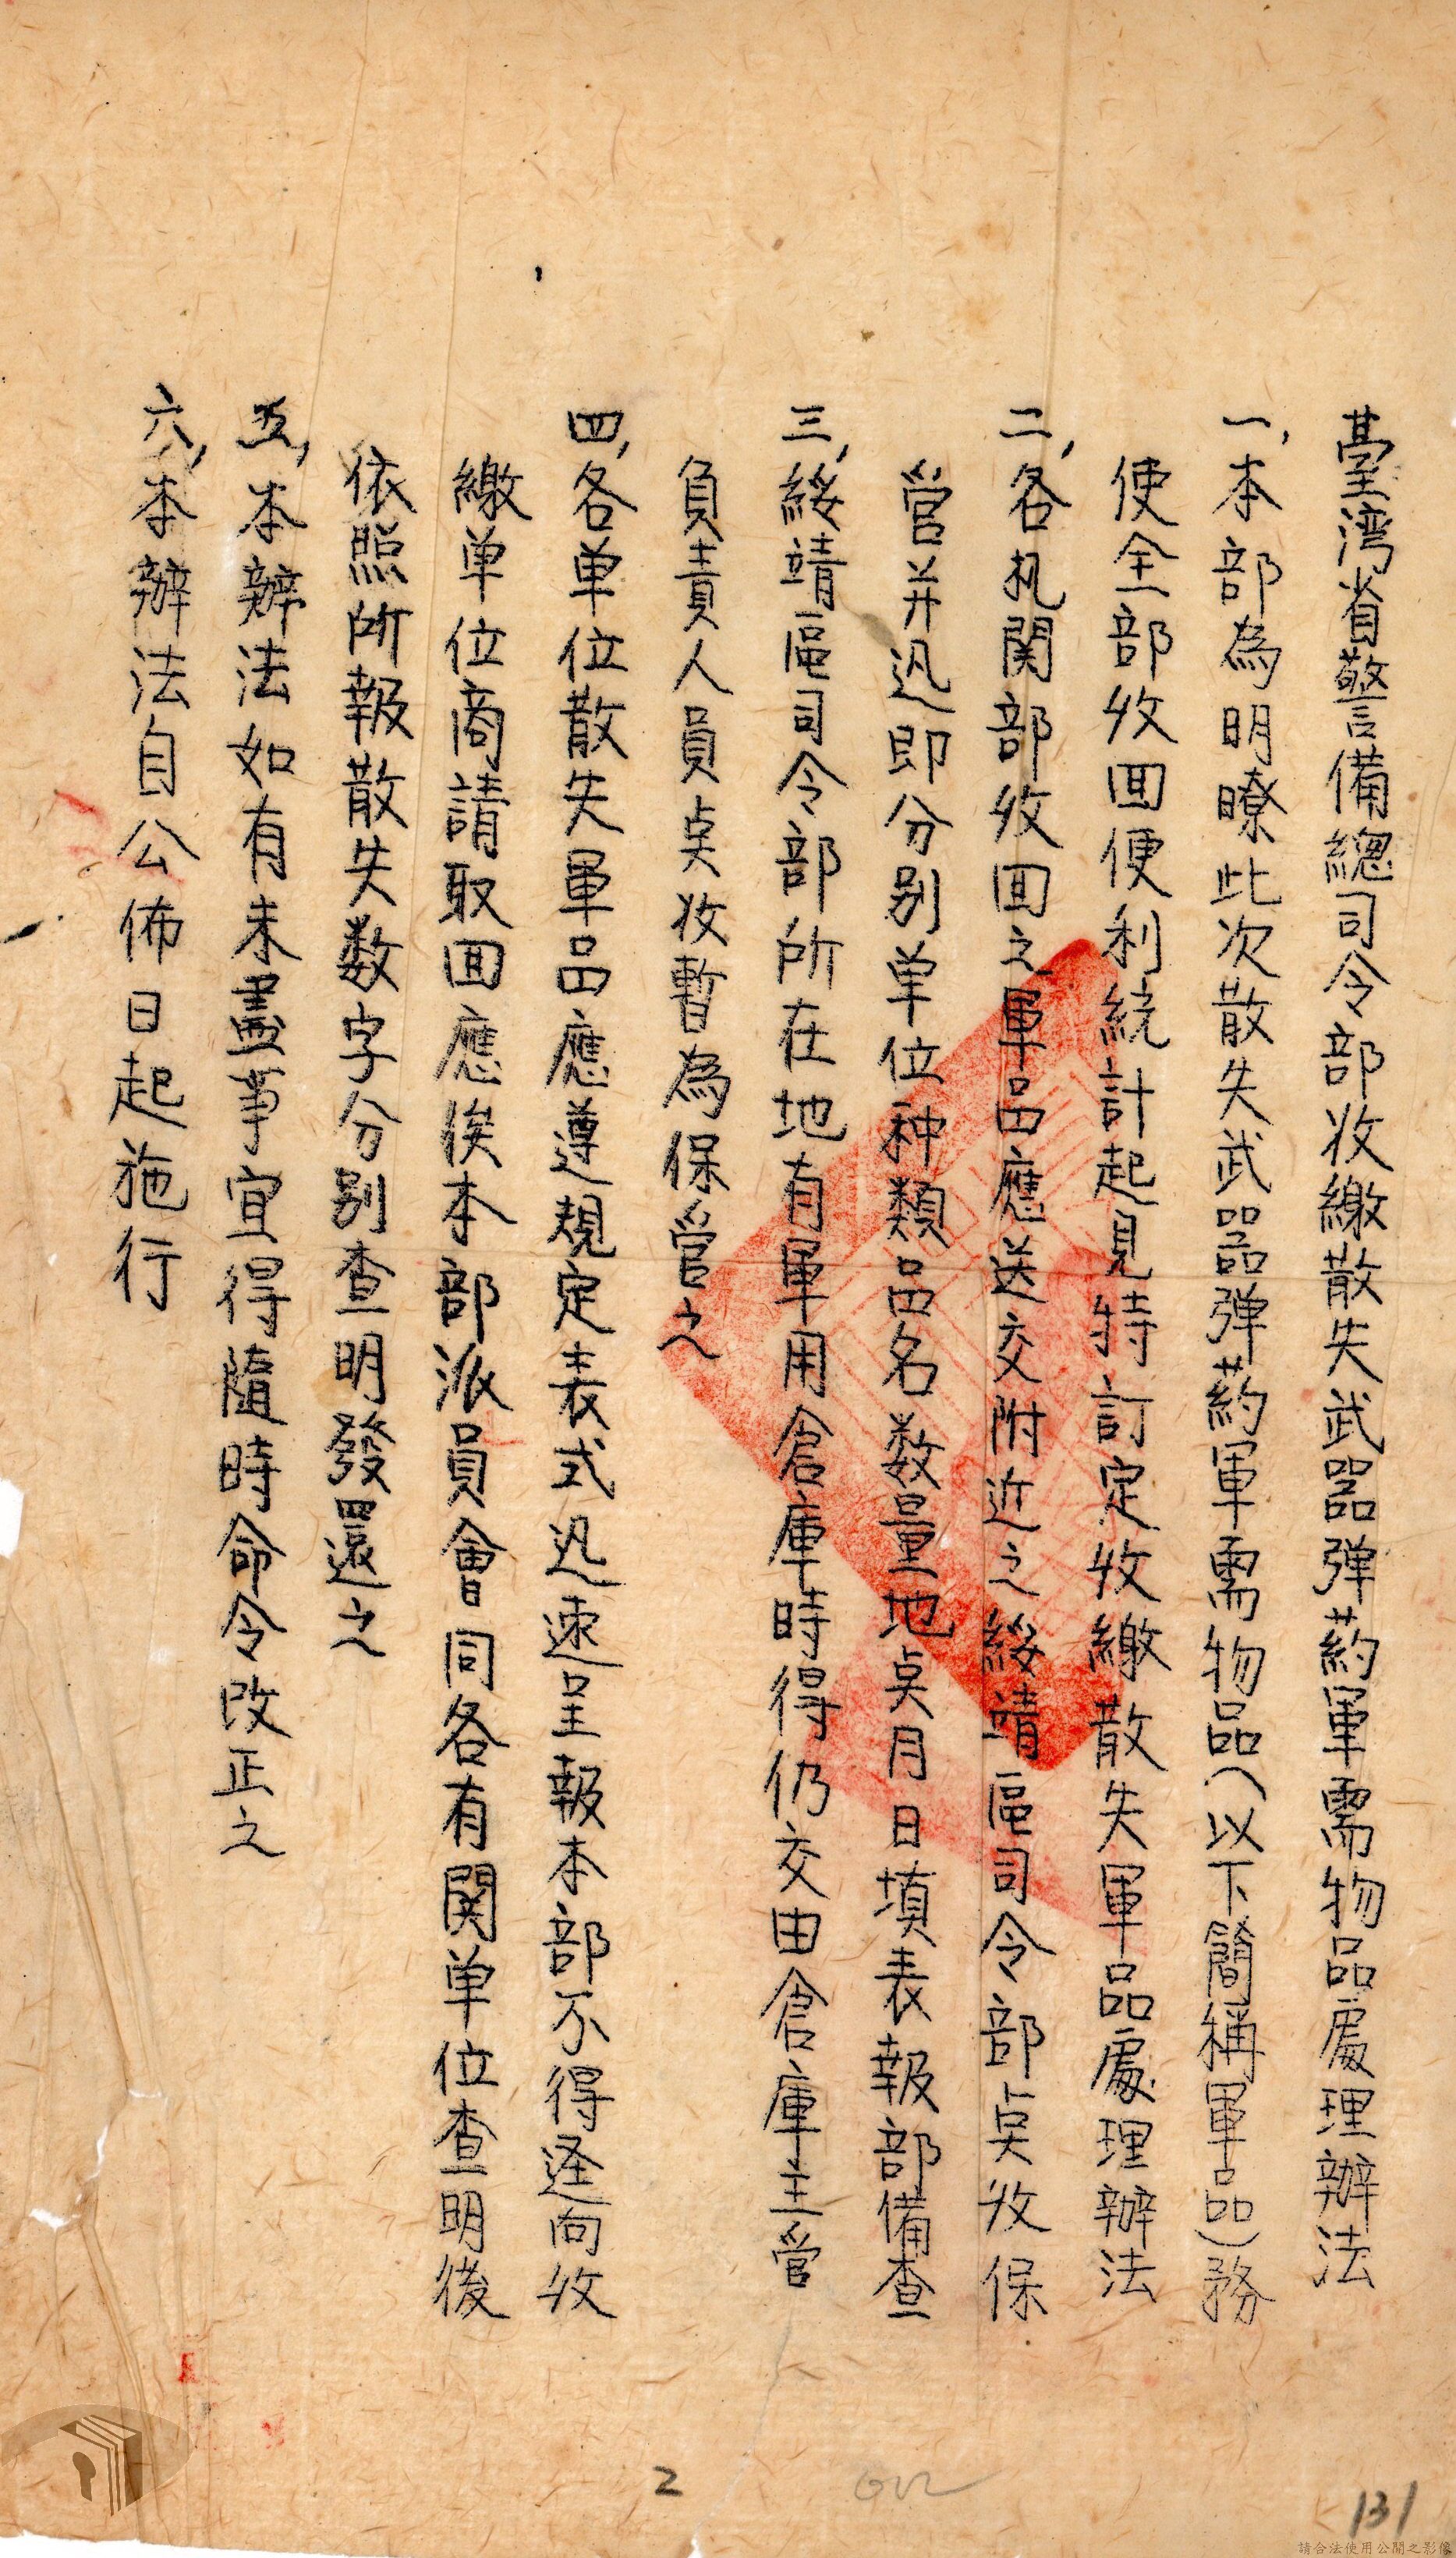 臺湾省警備總司令部收繳散失武器弹葯軍需物品處理辦法
一,本部為明瞭此次散失武器弹葯軍需物品(以下簡稱軍品)務
使全部收囬便利統計起見特訂定收繳散失軍品處理辦法
二,各机関部收囬之軍品應送交附近之綏靖區司令部㸃收保
管并迅即分别单位种類品名数量地㸃月日填表報部備查
三,綏靖區司令部所在地有軍用倉庫時得仍交由倉庫主管
負責人員㸃收暫為保管之
四,各单位散失軍品應遵規定表式迅速呈報本部不得逕向收
繳单位商請取囬應俟本部派員會同各有関单位查明後
依照所報散失数字分别查明發還之
五,本辦法如有未盡事宜得隨時命令改正之
六,本辦法自公佈日起施行
2
131
請合法使用公開之影像